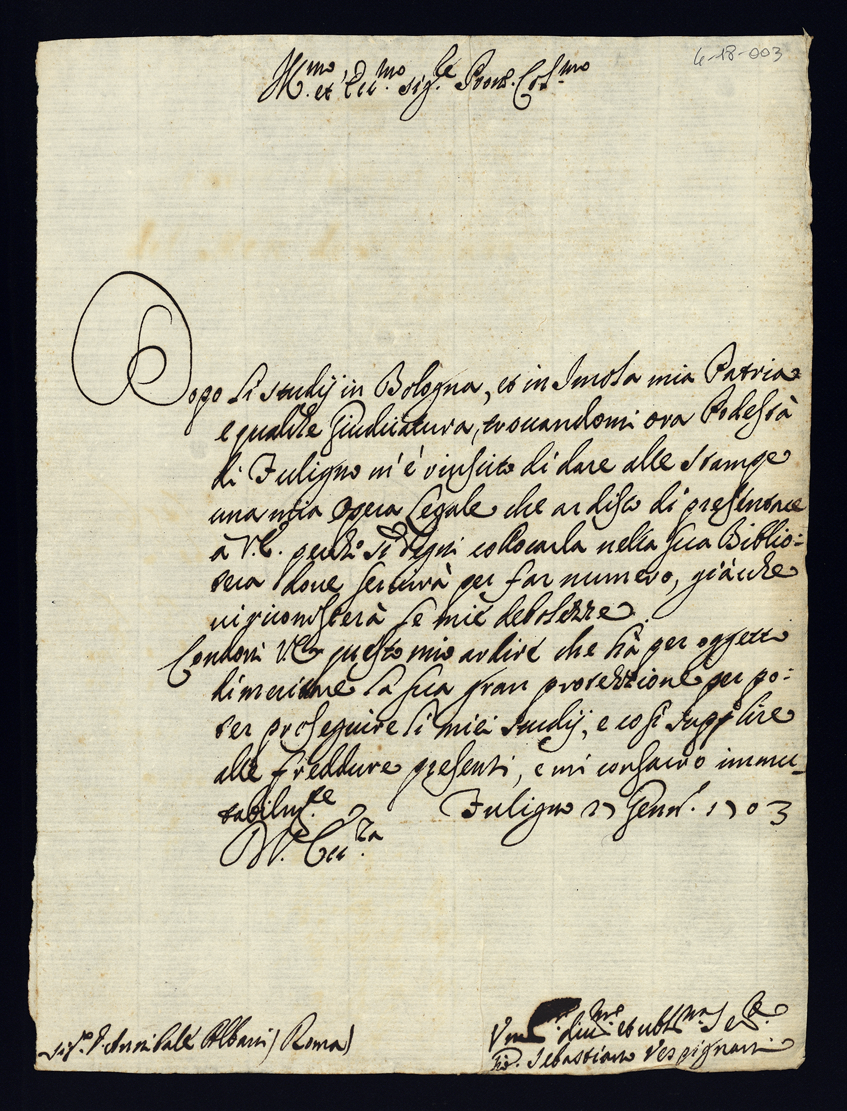 4-18-003
Ill.mo et Ecc.mo Sig.re Pron. Col.mo
Dopo li studij in Bologna, et in Imola mia Patria
e qualche Giudicatura, trouandomi ora Podestà
di Fuligno m'è riuscito di dare alle stampe
una mia Opera Legale che ardisco di presentare
a V.E. perche si degni collocarla nella sua Biblio=
teca doue seruirà per far numero, giàche
ui riconoscerà le mie debolezze.
Condoni V.E. questo mio ardire che hà per oggetto
di meritare la sua gran protezzione per po=
ter proseguire li miei studij, e così supplire
alle freddure presenti, e mi consacro immu=
tabilm.te Fuligno 27 Genn. 1703
D. V. Ecc.za
Sig.r D. Annibale Albani (Roma)
Um. diu. et obl.mo Se.
Sebastiano Vespignani